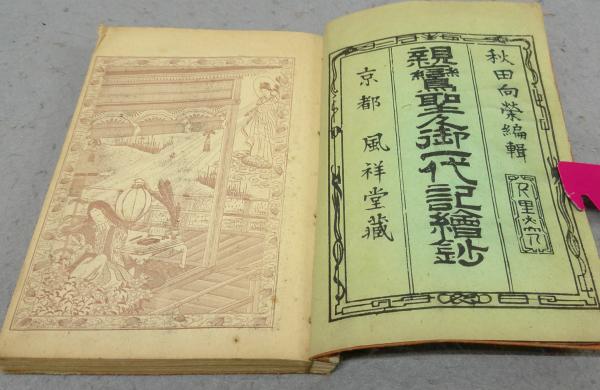 秋田向榮編輯
親鸞聖人御一代記繪鈔
京都 風祥堂藏